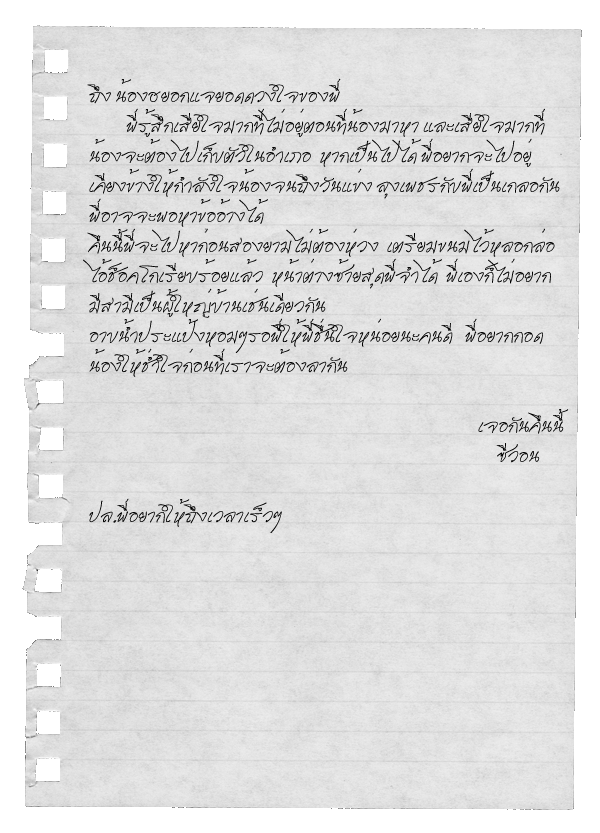 ถึง น้องชยอกแจยอดดวงใจของพี่
พี่รู้สึกเสียใจมากที่ไม่อยู่ตอนที่น้องมาหา และเสียใจมากที่
น้องจะต้องไปเก็บตัวในอำเภอ หากเป็นไปได้พี่อยากจะไปอยู่
เคียงข้างให้กำลังใจน้องจนถึงวันแข่ง ลุงเพชรกับพี่เป็นเกลอกัน
พี่อาจจะพอหาข้ออ้างได้
คืนนี้พี่จะไปหาก่อนสองยามไม่ต้องห่วง เตรียมขนมไว้หลอกล่อ
ไอ้ช็อคโกเรียบร้อยแล้ว หน้าต่างซ้ายสุดพี่จำได้ พี่เองก็ไม่อยาก
มีสามีเป็นผู้ใหญ่บ้านเช่นเดียวกัน
อาบน้ำประแป้งหอมๆรอพี่ให้พี่ชื่นใจหน่อยนะคนดี พี่อยากกอด
น้องให้ช่ำใจก่อนที่เราจะต้องลากัน
เจอกันคืนนี้
ชีวอน
ปล.พี่อยากให้ถึงเวลาเร็วๆ